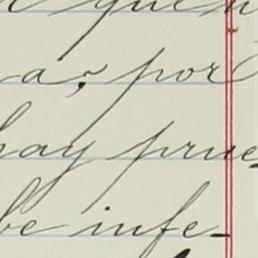 quen
a, por
hay prue-
be infe-